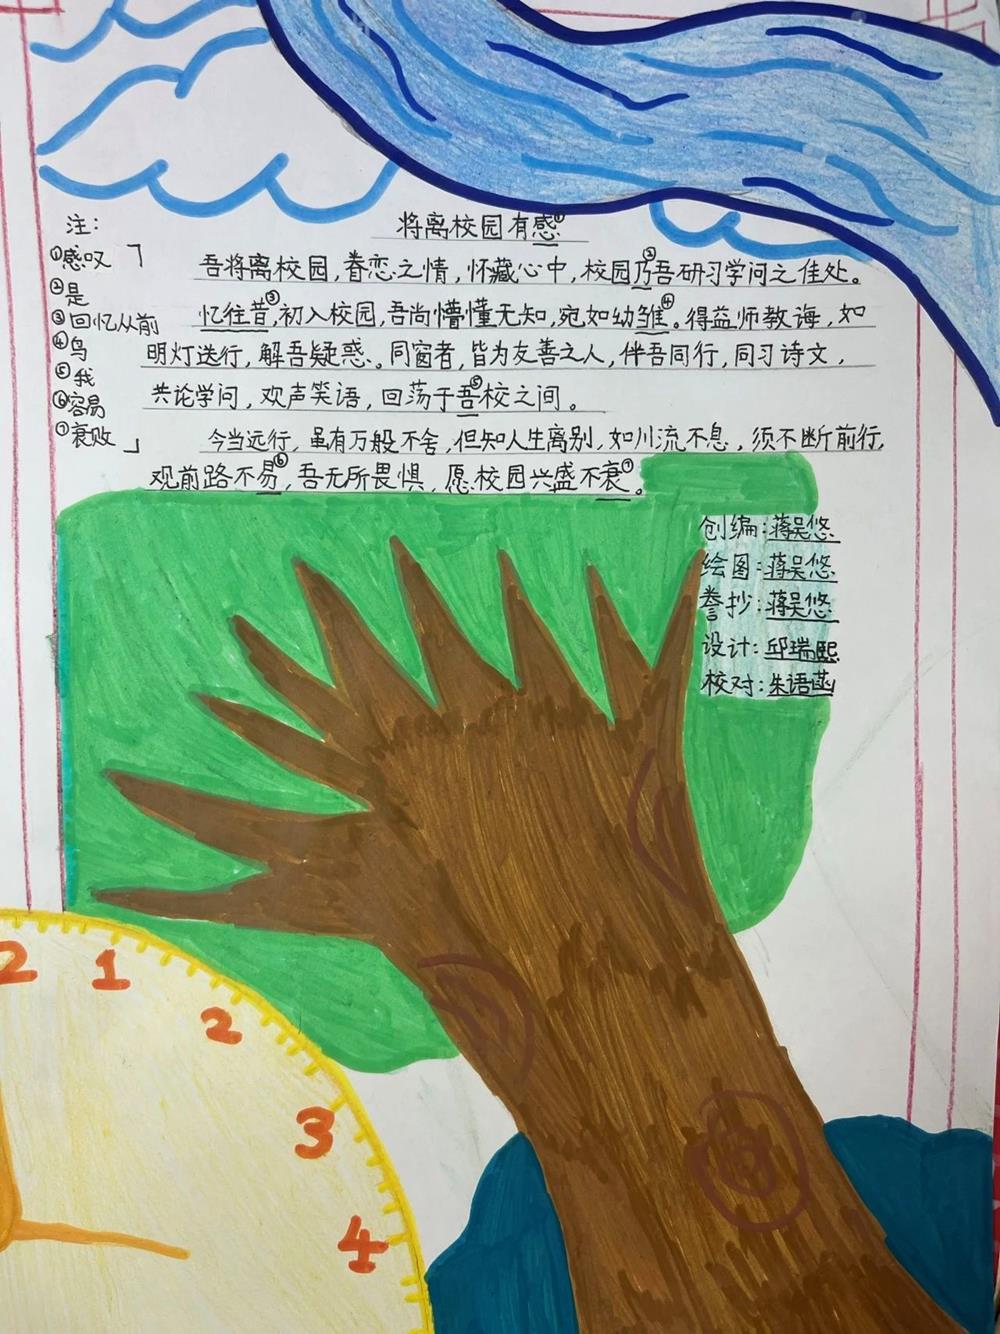 将离校园有感①
吾将离校园，眷恋之情，怀藏心中，校园乃②吾研习学问之佳处。
忆往昔③，初入校园，吾尚懵懂无知，宛如幼雏④。得益师教诲，如
明灯送行，解吾疑惑。同窗者，皆为友善之人，伴吾同行，同习诗文，
共论学问，欢声笑语，回荡于吾⑤校之间。
今当远行，虽有万般不舍，但知人生离别，如川流不息，须不断前行，
观前路不易⑥，吾无所畏惧，愿校园兴盛不衰⑦。
注：
①感叹
②是
③回忆从前
④鸟
⑤我
⑥容易
⑦衰败
创编：蒋吴悠
绘图：蒋吴悠
誊抄：蒋吴悠
设计：邱瑞熙
校对：朱语菡
2
1
2
3
4